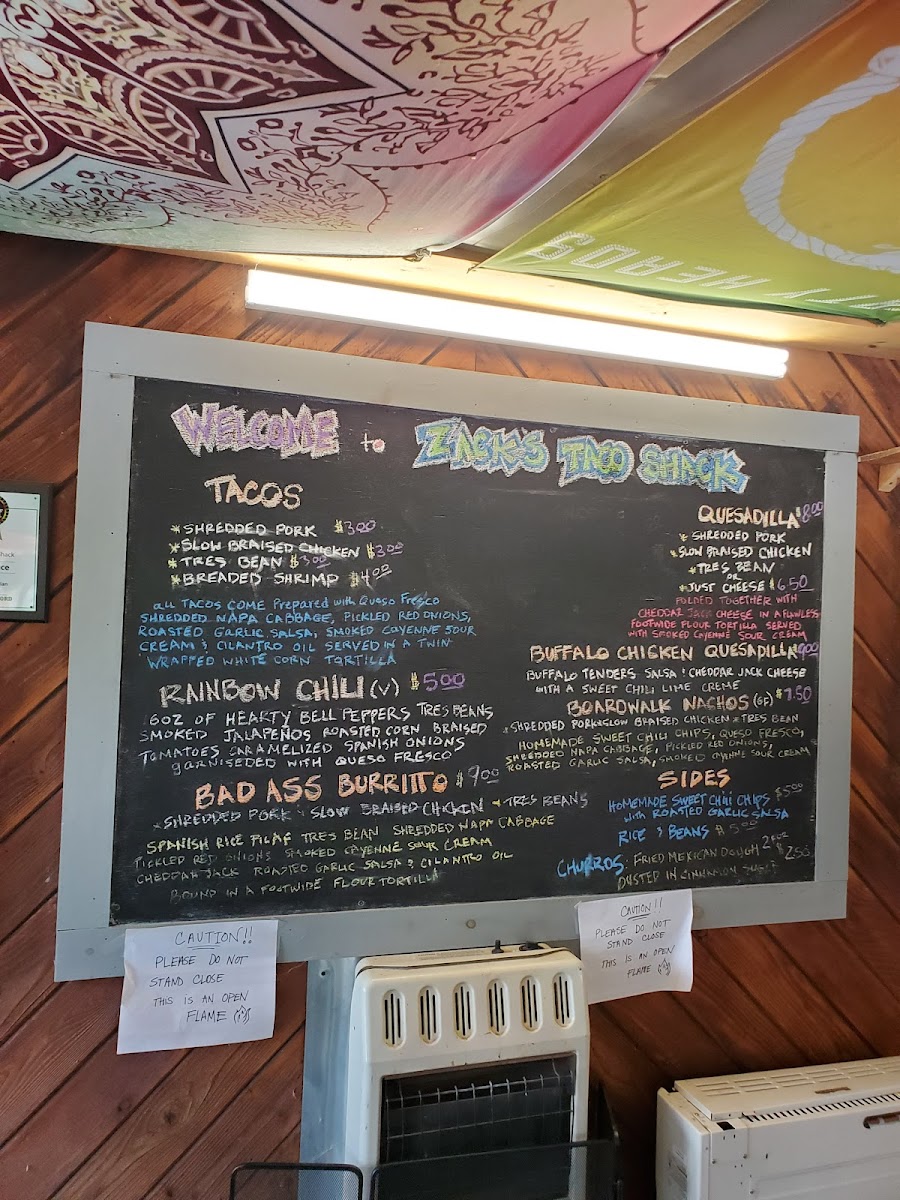 WELCOME to ZACK'S TACO SHACK
TACOS
*SHREDDED PORK $3.00
*SLOW BRAISED CHICKEN $3.00
*TRES BEAN $3.00
*BREADED SHRIMP $4.00
all TACOS COME Prepared with Queso Fresco
SHREDDED NAPA CABBAGE, PICKLED RED ONIONS,
ROASTED GARLIC SALSA, SMOKED CAYENNE SOUR
CREAM & CILANTRO OIL SERVED IN A TWIN
WRAPPED WHITE CORN TORTILLA
RAINBOW CHILI (V) $5.00
6OZ OF HEARTY BELL PEPPERS TRES BEANS
SMOKED JALAPEÑOS ROASTED CORN BRAISED
TOMATOES CARAMELIZED SPANISH ONIONS
GARNISEDED WITH QUESO FRESCO
BAD ASS BURRITTO $9.00
*SHREDDED PORK * SLOW BRAISED CHICKEN * TRES BEANS
SPANISH RICE PILAF TRES BEAN SHREDDED NAPA CABBAGE
PICKLED RED ONIONS SMOKED CAYENNE SOUR CREAM
CHEDDAR JACK ROASTED GARLIC SALSA & CILANTRO OIL
BOUND IN A FOOTWIDE FLOUR TORTILLA
QUESADILLA $8.00
* SHREDDED PORK
*SLOW BRAISED CHICKEN
*TRES BEAN
OR
*JUST CHEESE $6.50
FOLDED TOGETHER WITH
CHEDDAR JACK CHEESE IN A FLAWLESS
FOOTWIDE FLOUR TORTILLA SERVED
WITH SMOKED CAYENNE SOUR CREAM
BUFFALO CHICKEN QUESADILLA $9.00
BUFFALO TENDERS SALSA & CHEDDAR JACK CHEESE
WITH A SWEET CHILI LIME CREME
BOARDWALK NACHOS (GF) $7.50
*SHREDDED PORK*SLOW BRAISED CHICKEN*TRES BEAN
HOMEMADE SWEET CHILI CHIPS, QUESO FRESCO,
SHREDDED NAPA CABBAGE, PICKLED RED ONIONS,
ROASTED GARLIC SALSA, SMOKED CAYENNE SOUR CREAM
SIDES
HOMEMADE SWEET CHili CHIPS $5.00
with ROASTED GARLIC SALSA
RICE & BEANS $5.00
CHURROS: FRIED MEXICAN DOUGH 2 FOR $2.50
DUSTED IN CINNAMON
CAUTION!!
PLEASE DO NOT
STAND CLOSE
THIS IS AN OPEN
FLAME
CAUTION!!
PLEASE DO NOT
STAND CLOSE
THIS IS AN OPEN
FLAME